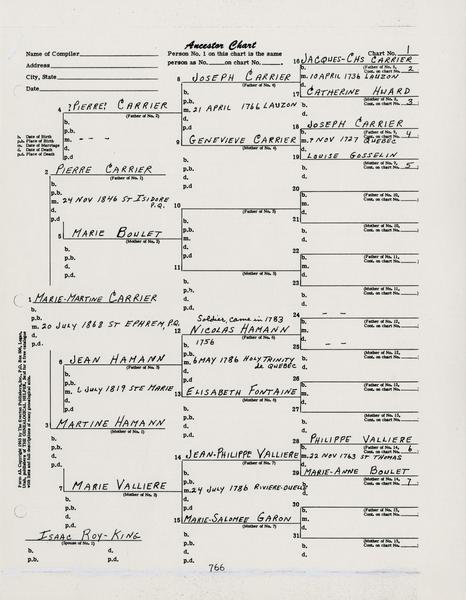 Ancestor Chart
Name of Compiler
Address
City, State
Date
Person No. 1 on this chart is the same
person as No. on chart No.
Chart No. 1
16 JACQUES-CHS CARRIER
(Father of 8,
Cont. on chart No. 2
m. 10 APRIL 1736 LAUZON
8 JOSEPH CARRIER
(Father of No. 4)
b.
p.b.
m. 21 APRIL 1766 LAUZON
d.
p.d
17 CATHERINE HUARD
(Mother of No. 8,
Cont. on chart No. 3
4 ?PIERRE? CARRIER
(Father of No. 2)
b.
p.b.
m. - - -
d.
p.d
18 JOSEPH CARRIER
(Father of No. 9,
Cont. on chart No. 4
m. 7 NOV 1727 QUEBEC
9 GENEVIEVE CARRIER
(Mother of No. 4)
b.
p.b.
d.
p.d
19 LOUISE GOSSELIN
(Mother of No. 9,
Cont. on chart No. 5
b. Date of Birth
p.b. Place of Birth
m. Date of Marriage
d. Date of Death
p.d. Place of Death
2 PIERRE CARRIER
(Father of No. 1)
b.
p.b.
m. 24 NOV 1846 ST ISIDORE
P.Q.
d.
p.d
20
(Father of No. 10,
Cont. on chart No.
10
(Father of No. 5)
b.
p.b.
m.
d.
p.d
21
(Mother of No. 10,
Cont. on chart No.
5 MARIE BOULET
(Mother of No. 2)
b.
p.b.
d.
p.d
22
(Father of No. 11,
Cont. on chart No.
11
(Mother of No. 5)
b.
p.b.
d.
p.d
23
(Mother of No. 11,
Cont. on chart No.
1 MARIE-MARTINE CARRIER
b.
p.b.
m. 20 JULY 1868 ST EPHREM, P.Q.
d.
p.d.
24 - -
(Father of No. 12,
Cont. on chart No.
Soldier, came in 1783
12 NICOLAS HAMANN
b. 1756
p.b.
m. 6 MAY 1786 HOLY TRINITY
de QUEBEC
d.
p.d
25 - -
(Mother of No. 12,
Cont. on chart No.
6 JEAN HAMANN
(Father of No. 3)
b.
p.b.
m. 6 JULY 1819 STE MARIE
d.
p.d
26
(Father of No. 13,
Cont. on chart No.
13 ELISABETH FONTAINE
(Mother of No. 6)
b.
p.b.
d.
p.d
27
(Mother of No. 13,
Cont. on chart No.
3 MARTINE HAMANN
(Mother of No. 1)
b.
p.b.
d.
p.d
28 PHILIPPE VALLIERE
(Father of No. 14,
Cont. on chart No. 6
m. 22 NOV 1763 ST THOMAS
14 JEAN-PHILIPPE VALLIERE
(Father of No. 7)
b.
p.b.
m. 24 JULY 1786 RIVIERE-OUELLE
d.
p.d
29 MARIE-ANNE BOULET
(Mother of No. 14,
Cont. on chart No. 7
7 MARIE VALLIERE
(Mother of No. 3)
b.
p.b.
d.
p.d
30
(Father of No. 15,
Cont. on chart No.
15 MARIE-SALOMEE GARON
(Mother of No. 7)
b.
p.b.
d.
p.d
31
(Mother of No. 15,
Cont. on chart No.
ISAAC ROY-KING
(Spouse of No. 1)
b. d.
p.b. p.d.
766